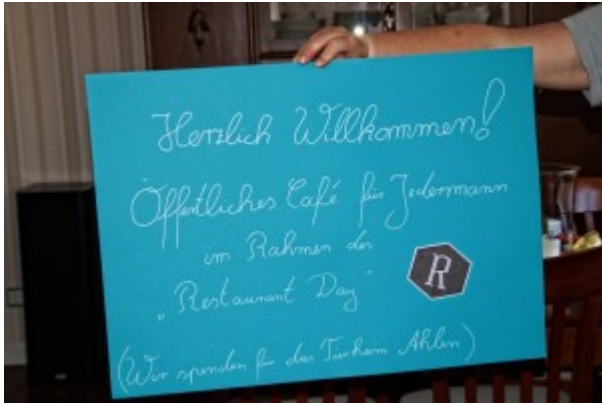 Herzlich Willkommen!
Öffentliches Café für Jedermann
im Rahmen des
„Restaurant Day"
R
(Wir spenden für das Tierheim Ahlen)